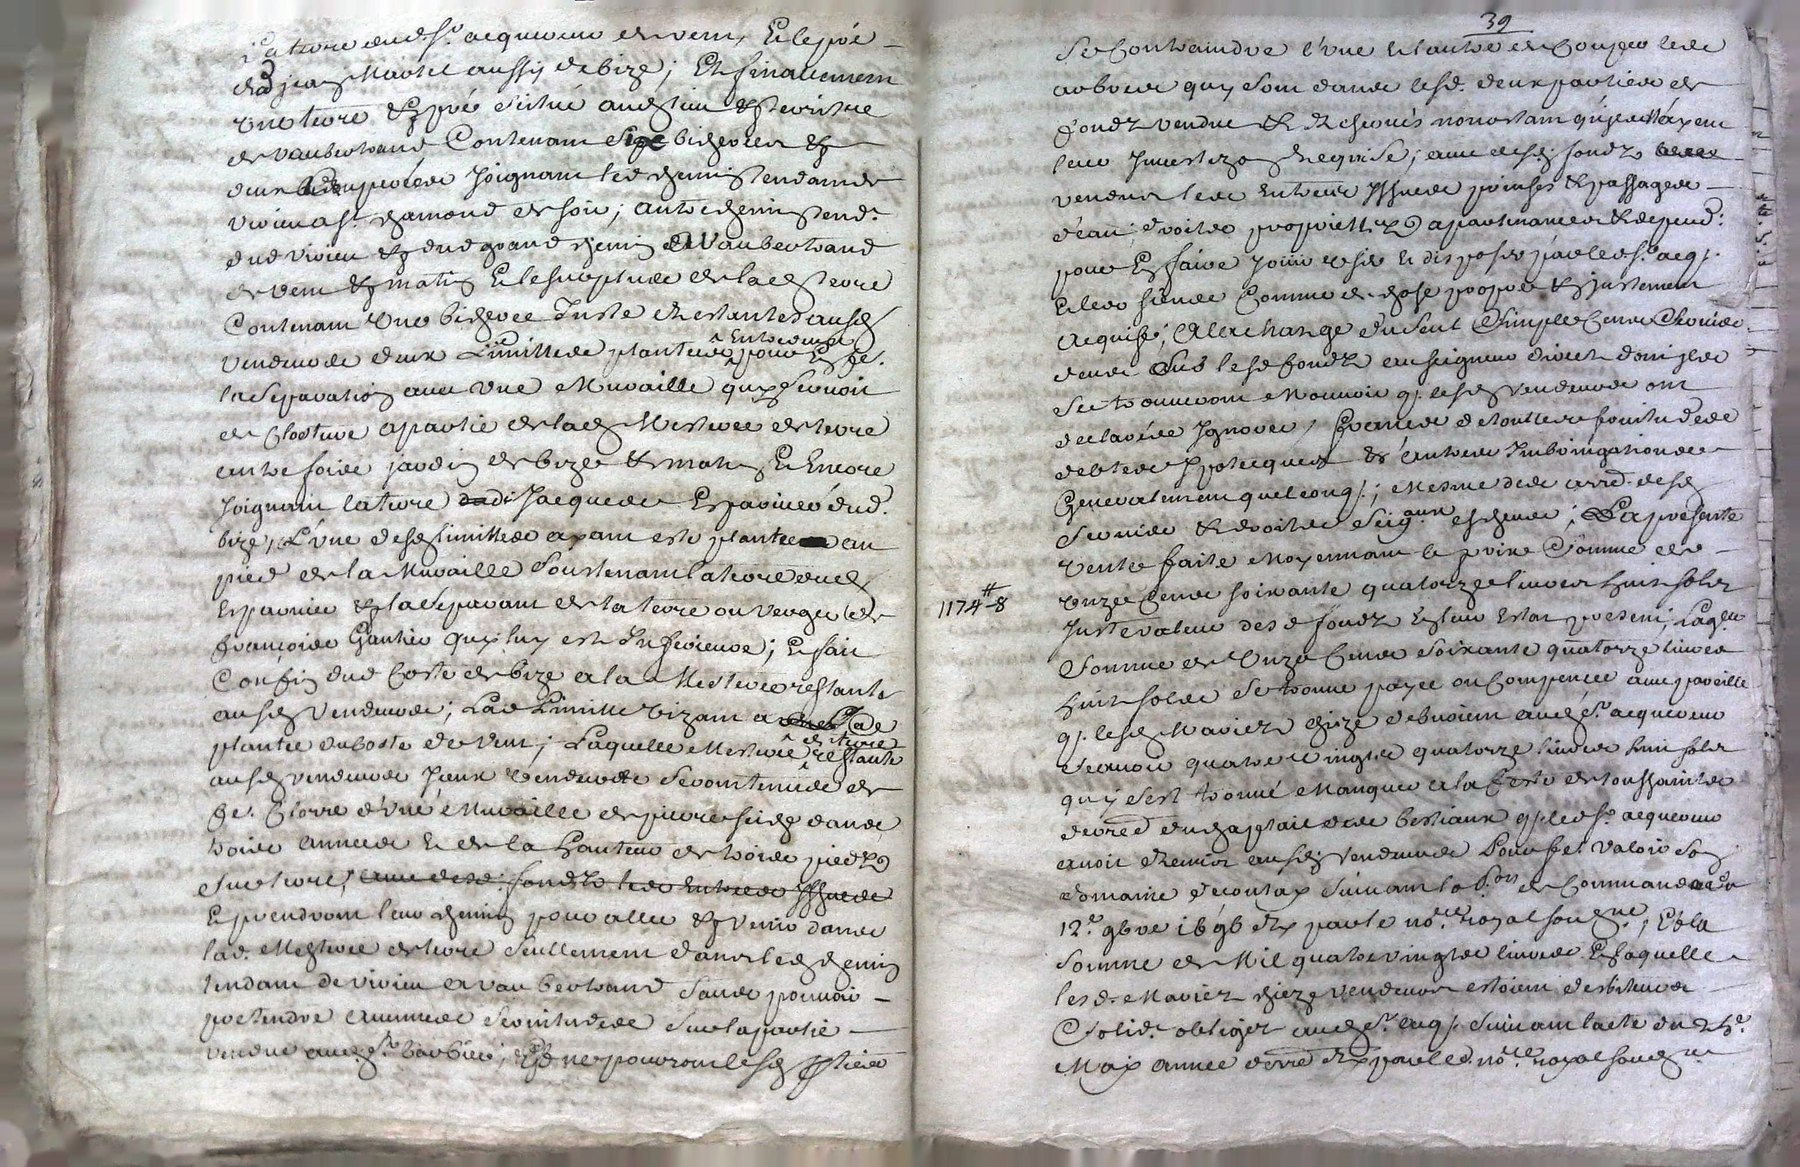 la terre dud. sr. acquereur de vent, Et le pré
de jean Martel aussy de bize; Et finallement
une terre & pré scitué aud. lieu & terroir
de vaubertrand Contenant six bicherées &
deux coupées Joignant led. chemin tendant de
vivieu a st. chamond de soir; autre chemin tend.t
dud vivieu & dud grand chemin a vaubertrand
de vent & matin Et le surplus de lad. terre
Contenant une bicherée Juste restante ausd.
vendeurs deux Limittes plantées entredeux pour En fe.
la Separation avec une Muraille quy servoit
de Closture a partie de lad. Mesteree de terre
autre fois jardin de bize & matin, Et Encore
Joignant la terre Jacques Espanier dud.
bize, L'une desd. limittes ayant esté plantée au
pied de la Muraille Soustenant la terre dud.
Espanier & la Separant de la terre ou verger de
françois Gautier quy luy est Inferieure; Et fait
Confin dud Costé de bize a la Mesteree restante
ausd. vendeurs; Lad. Limitte vizant a
plantée du Costé de vent; Laquelle Mesterée de terre restante
ausd. vendeurs Iceux vendeurs Seront tenus de
fe. Clorre d'une Muraille de pierre seiche dans
trois années Et de la hauteur de trois pieds
sur terre, avec desd. fonds les Entrées Issues
Et prendront leur chemin pour aller & venir dans
lad. Mesteree de terre Seullement dans led. chemin
tendant de vivieu a vaubertrand sans pouvoir
pretendre aucunes Servitudes Sur la partie
vendue aud. sr. barbier, Et ne pourront lesd. parties
39
Se Contraindre l'une Et l'autre de Couper les
arbres quy Sont dans lesd. deux parties de
fonds vendue & reservés nonostant qu'ils n'ayent
leur Juvestizon requise; avec desd. fonds
vendus les Entrées Issues prinses & passages
d'eau; droits proprietés apartenances & depend.
pour En faire Jouir user Et disposer par led. sr. acq.
Et les siens Comme de chose propre & justement
acquise; A la charge d'un seul & simple Cens & servis
deus sur lesd. fonds au seigneur direct dont ils
Se trouveront Mouvoir q. lesd. vendeurs ont
declarés Ignorer, francs de toutes servitudes
debtes ypotecques & autres Imbringations
Generalement quelconq.; Mesme des arrd. desd.
Servis & droits Seigaux escheus; La presente
vente faite Moyennant le prix & somme de
1174 # 8
unze Cens soixante quatorze livres huit sols
Juste valeur desd fonds En leur Estat present, Laq.lle
Somme de Unze Cens soixante quatorze livres
huit sols Se trouve payée ou Compencée avec pareille
q. lesd. Mariez chieze debvoient aud. sr. acquereur
scavoir quatre vingts quatorze livres huit sols
quy s'est trouvé Manquer a la feste de toussaints
derre du chaptail des bestiaux q. led. sr. acquereur
avoit remis ausd. vendeurs Pour fe. valoir Son
domaine de contay Suivant la d.on de Commande du
12.e 9bre 1696 Rx par le no.re royal soug.né; Et la
Somme de Mil quatrevingts livres En laquelle
lesd. Mariez chieze vendeurs estoient debiteurs
Solid.t obligez aud. sr. acq. Suivant l'acte du
May année derre Rx par led. no.re royal soug.né